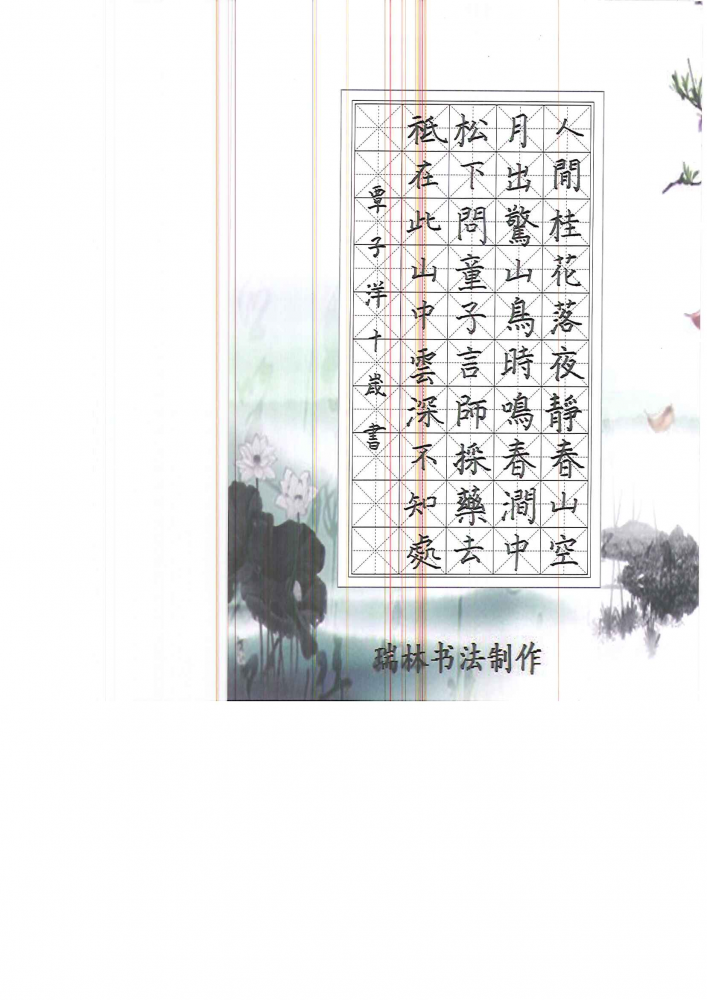 人閒桂花落夜靜春山空
月出驚山鳥時鳴春澗中
松下問童子言師採藥去
祗在此山中雲深不知處
覃子洋十歲書
瑞林书法制作